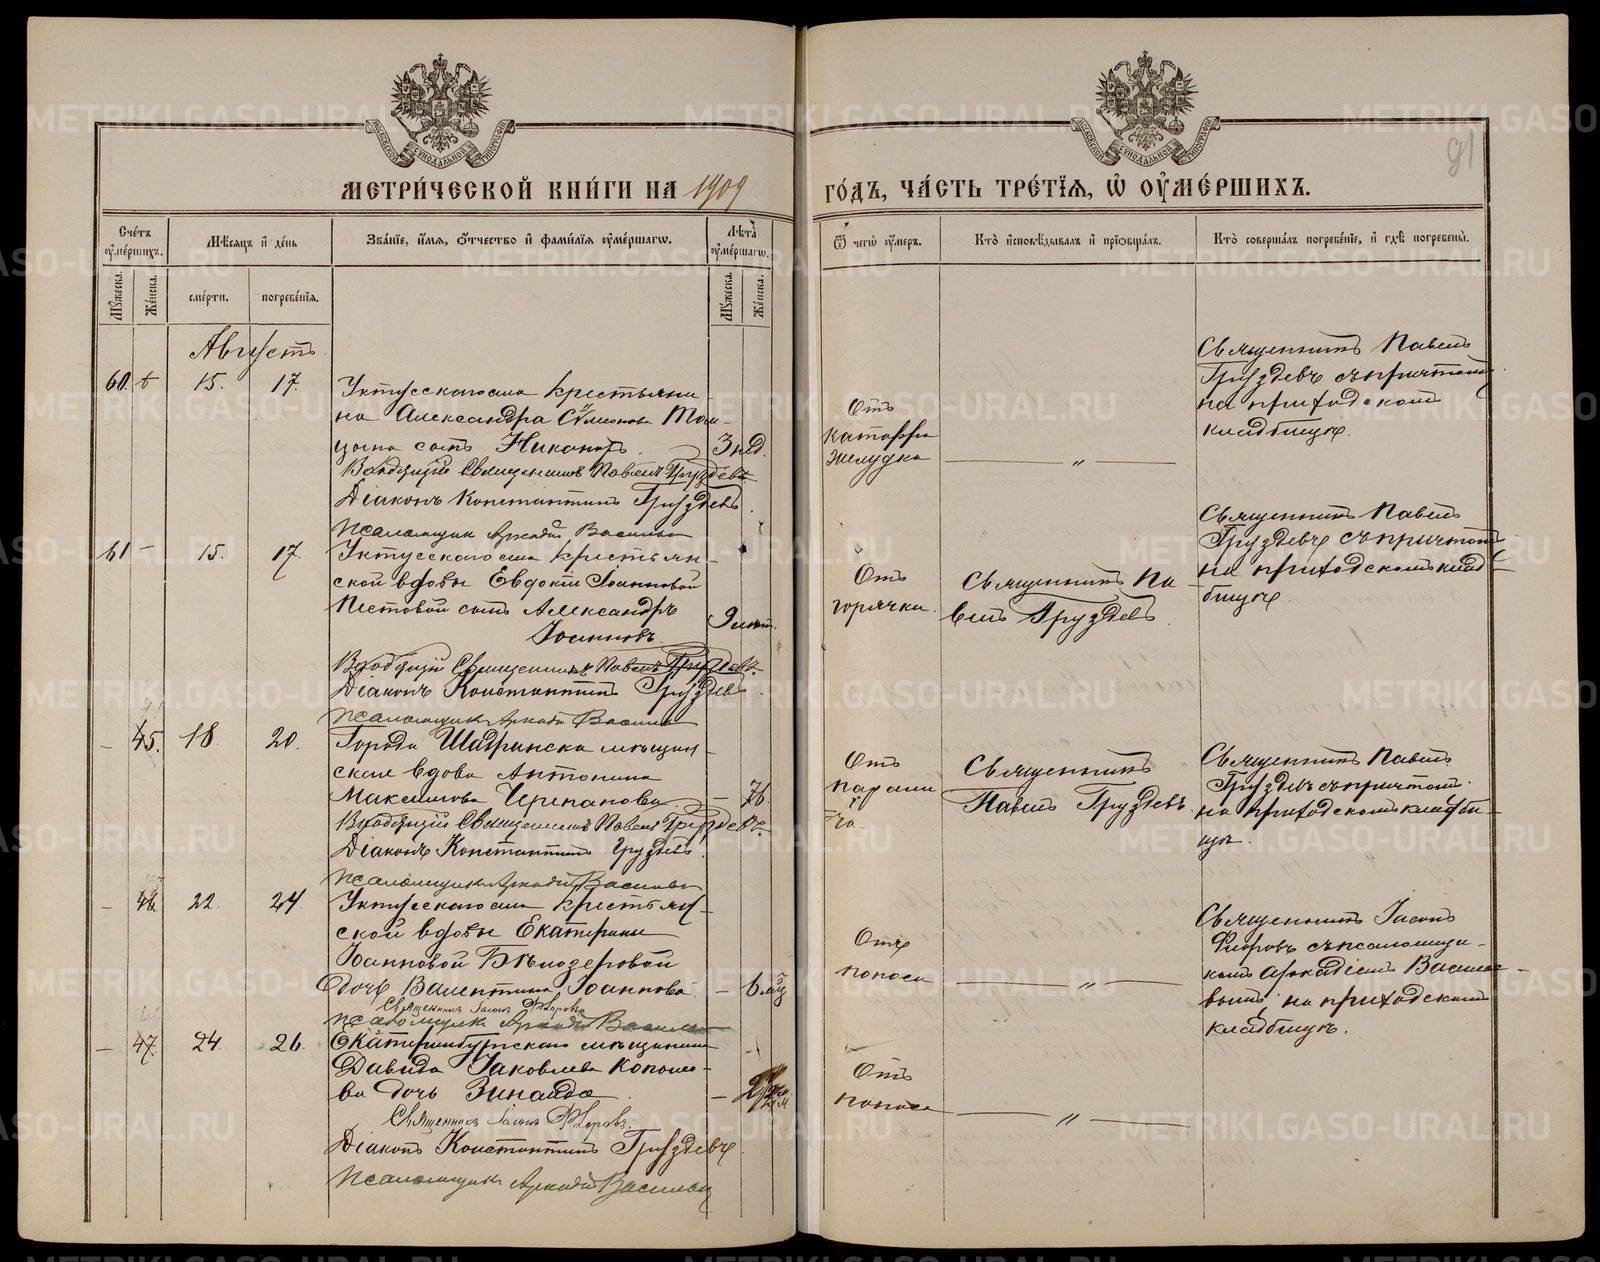 МЕТРИ́ЧЕСКОЙ КНИ́ГИ НА 1909
ГО́ДЪ, ЧА́СТЬ ТРЕ́ТІЯ, Ѡ҆ ОУ҆МЕ́РШИХЪ.
91
Сче́тъ оу҆ме́ршихъ.
Мѣ́сяцъ и҆ де́нь
Зва́нїе, и҆́мя, ѻ҆́тчество и҆ фами́лїя оу҆ме́ршагѡ.
Лѣ́та оу҆ме́ршагѡ.
Ѿ чегѡ̀ оу҆́меръ.
Кто̀ и҆сповѣ́дывалъ и҆ прїѡбща́лъ.
Кто̀ соверша́лъ погребе́нїе, и҆ гдѣ̀ погребены̀.
Мꙋ́жеска.
Же́нска.
сме́рти.
погребе́нїя.
Мꙋ́жеска.
Же́нска.
Августъ.
60.
15.
17.
Уктусскаго села крестьяни
на Александра Сѵмеонова
сынъ Никаноръ.
3 нед.
Священникъ Павелъ Груздевъ
Діаконъ Константинъ Груздевъ.
Псаломщик Аркадій Васильев
Отъ
катарра
желудка
— " —
Священникъ Павелъ
Груздевъ съ причтомъ
на приходскомъ
кладбищѣ.
61
—
15.
17.
Уктусскаго села крестьян-
ской вдовы Евдокіи Іоанновой
Пестовой сынъ Александръ
Іоанновъ
9 лѣт.
Священникъ Павелъ Груздевъ.
Діаконъ Константинъ Груздевъ.
Псаломщик Аркадій Васильев
Отъ
горячки.
Священникъ Па
велъ Груздевъ.
Священникъ Павелъ
Груздевъ съ причтомъ
на приходскомъ клад-
бищѣ.
—
45.
18.
20.
Города Шадринска мѣщан-
ская вдова Антонина
Максимова Черепанова.
—
76.
Священникъ Павелъ Груздевъ.
Діаконъ Константинъ Груздевъ.
Псаломщик Аркадій Васильев
Отъ
Священникъ
Павелъ Груздевъ.
Священникъ Павелъ
Груздевъ съ причтом
на приходскомъ кладби-
щѣ.
—
46.
22.
24.
Уктусскаго села крестьян-
ской вдовы Екатерины
Іоанновой Бѣлозеровой
дочь Валентина Іоаннова
—
6 мѣц
Священникъ Іасонъ Флоровъ
Псаломщик Аркадій Васильев
Отъ
поноса
— " —
Священникъ Іасонъ
Флоровъ съ псаломщи-
комъ Аркадіемъ Василье-
вымъ, на приходскомъ
кладбищѣ.
—
47.
24.
26.
Екатеринбургскаго мѣщанина
Давида Іаковлева Коноплe-
ва дочь Зинаида.
—
Священникъ Іасонъ Флоровъ.
Діаконъ Константинъ Груздевъ
Псаломщик Аркадій Васильев
Отъ
поноса
— " —